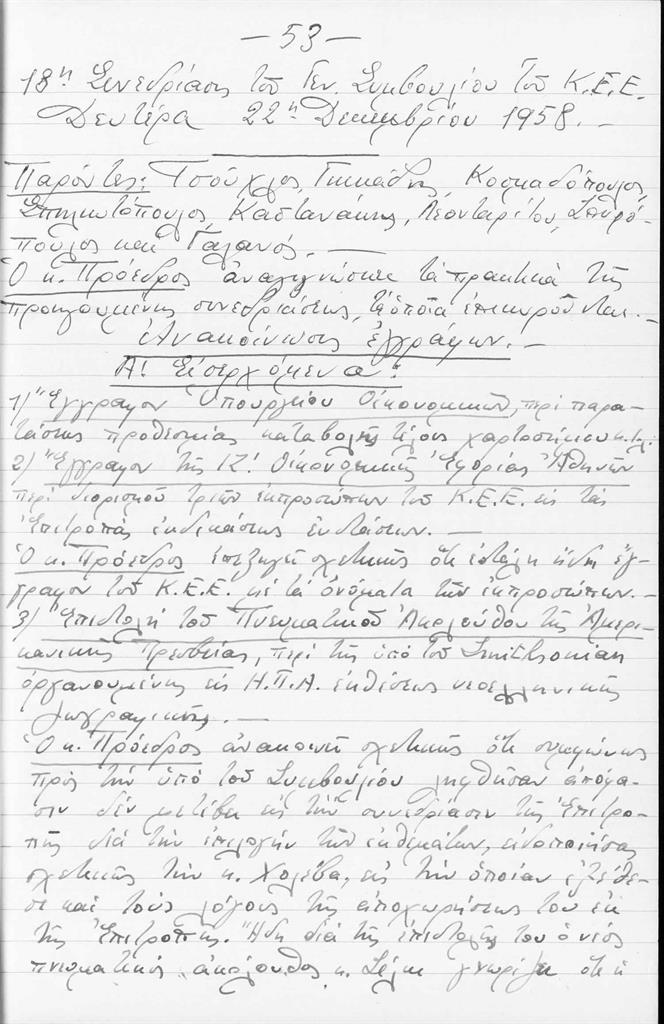 — 53 —
18η Συνεδρίασις τοῦ Γεν. Συμβουλίου τοῦ Κ.Ε.Ε.
Δευτέρα 22α Δεκεμβρίου 1958. —
Παρόντες: Τσοῦχλος, Γικκάδης, Κοσμαδόπουλος,
Σπηλιωτόπουλος, Καστανάκης, Λεονταρίτου, Σαυρό-
πουλος καὶ Γαλανός. —
Ὁ κ. Πρόεδρος ἀναγιγνώσκει τὰ πρακτικὰ τῆς
προηγουμένης συνεδριάσεως, τὰ ὁποῖα ἐπικυροῦνται. —
Ἀνακοίνωσις ἐγγράφων. —
Α! Εἰσερχόμενα:
1) Ἔγγραφον Ὑπουργείου Οἰκονομικῶν, περὶ παρα-
τάσεως προθεσμίας καταβολῆς τέλους χαρτοσήμου κ.τ.λ.
2) Ἔγγραφον τῆς ΙΖ! Οἰκονομικῆς Ἐφορίας Ἀθηνῶν
περὶ διορισμοῦ τριῶν ἐκπροσώπων τοῦ Κ.Ε.Ε. εἰς τὰς
Ἐπιτροπὰς ἐκδικάσεως ἐνστάσεων. —
Ὁ κ. Πρόεδρος ἐπεξηγεῖ σχετικῶς ὅτι ἐστάλη ἤδη ἔγ-
γραφον τοῦ Κ.Ε.Ε. μὲ τὰ ὀνόματα τῶν ἐκπροσώπων. —
3) Ἐπιστολὴ τοῦ Πνευματικοῦ Ἀκολούθου τῆς Ἀμερι-
κανικῆς Πρεσβείας, περὶ τῆς ὑπὸ τοῦ Smithsonian
ὀργανουμένης εἰς Η.Π.Α. ἐκθέσεως νεοελληνικῆς
ζωγραφικῆς. —
Ὁ κ. Πρόεδρος ἀνακοινεῖ σχετικῶς ὅτι συμφώνως
πρὸς τὴν ὑπὸ τοῦ Συμβουλίου ληφθῆσαν ἀπόφα-
σιν δὲν μετέβη εἰς τὴν συνεδρίασιν τῆς Ἐπιτρο-
πῆς διὰ τὴν ἐπιλογὴν τῶν ἐκθεμάτων, εἰδοποιήσας
σχετικῶς τὴν κ. Χολέβα, εἰς τὴν ὁποίαν ἐξέθε-
σε καὶ τοὺς λόγους τῆς ἀποχωρήσεως του ἐκ
τῆς Ἐπιτροπῆς. Ἤδη διὰ τῆς ἐπιστολῆς του ὁ νέος
πνευματικὸς ἀκόλουθος κ. γνωρίζει ὅτι ἡ